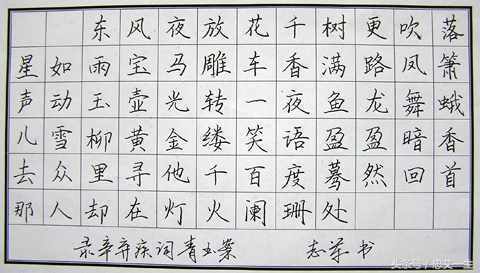 东风夜放花千树更吹落
星如雨宝马雕车香满路凤箫
声动玉壶光转一夜鱼龙舞蛾
儿雪柳黄金缕笑语盈盈暗香
去众里寻他千百度蓦然回首
那人却在灯火阑珊处
录辛弃疾词青玉案 志学书
头条号